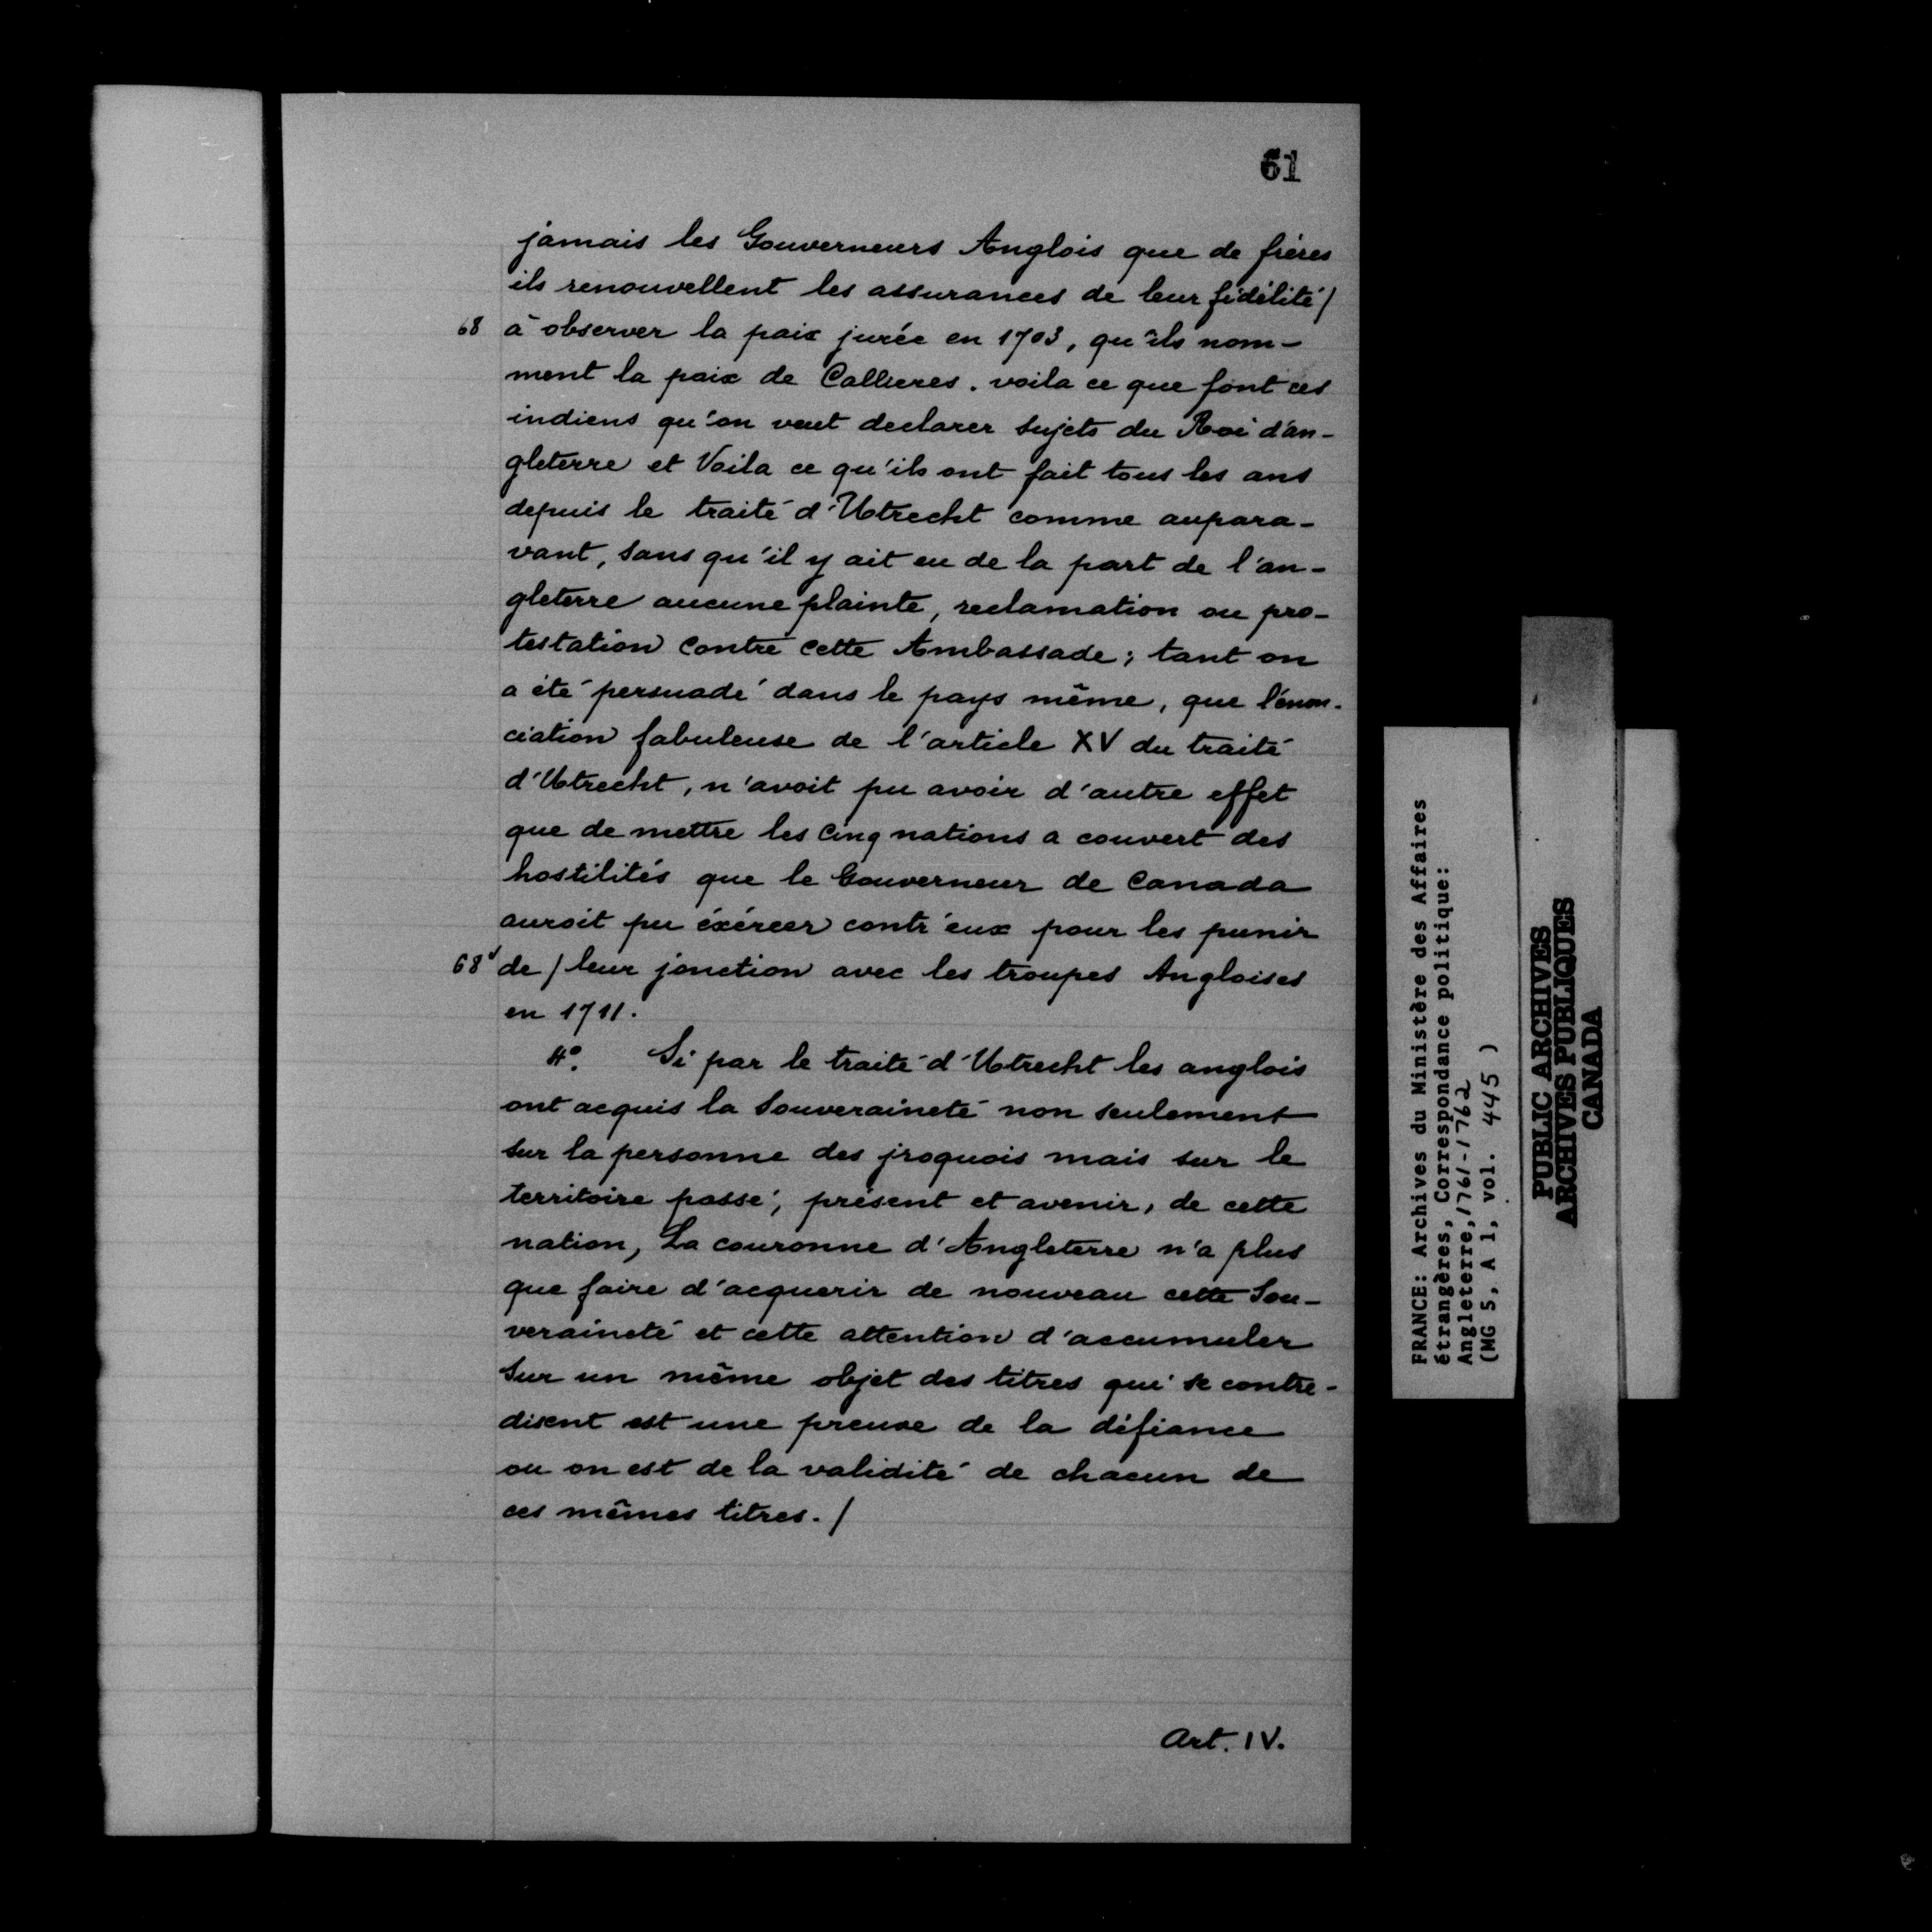 61
jamais les Gouverneurs Anglois que de frères
ils renouvellent les assurances de leur fidélité /
68 à observer la paix jurée en 1703, qu'ils nom-
ment la paix de Callieres. voila ce que font ces
indiens qu'on veut declarer sujets du Roi d'an-
gleterre et Voila ce qu'ils ont fait tous les ans
depuis le traité d'Utrecht comme aupara-
vant, sans qu'il y ait eu de la part de l'an-
gleterre aucune plainte, reclamation ou pro-
testation contre cette Ambassade; tant on
a été persuadé dans le pays même, que l'énon-
ciation fabuleuse de l'article XV du traité
d'Utrecht, n'avoit pu avoir d'autre effet
que de mettre les Cinq nations a couvert des
hostilités que le Gouverneur de Canada
auroit pu éxércer contr'eux pour les punir
68v de / leur jonction avec les troupes Angloises
en 1711.
4°. Si par le traité d'Utrecht les anglois
ont acquis la Souveraineté non seulement
sur la personne des jroquois mais sur le
territoire passé, présent et avenir, de cette
nation, La couronne d'Angleterre n'a plus
que faire d'acquerir de nouveau cette Sou-
veraineté et cette attention d'accumuler
Sur un même objet des titres qui se contre-
disent est une preuve de la défiance
ou on est de la validité de chacun de
ces mêmes titres. /
Art. IV.
FRANCE: Archives du Ministère des Affaires
étrangères, Correspondance politique:
Angleterre, 1761-1762
(MG 5, A 1, vol. 445 )
PUBLIC ARCHIVES
ARCHIVES PUBLIQUES
CANADA